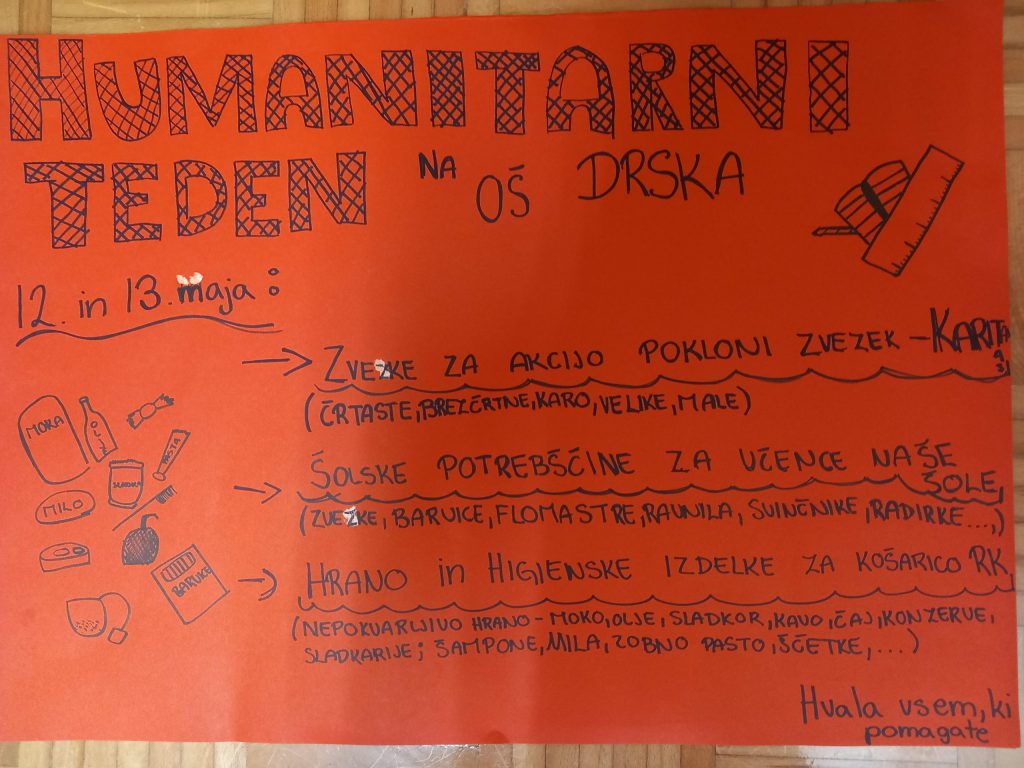 HUMANITARNI
TEDEN NA OŠ DRSKA
12. in 13. maja:
→ ZVEZKE ZA AKCIJO POKLONI ZVEZEK – KARITAS
(ČRTASTE, BREZČRTNE, KARO, VELIKE, MALE)
→ ŠOLSKE POTREBŠČINE ZA UČENCE NAŠE
ŠOLE,
(ZVEZKE, BARVICE, FLOMASTRE, RAVNILA, SVINČNIKE, RADIRKE...,)
→ HRANO in HIGIENSKE IZDELKE ZA KOŠARICO RK
(NEPOKVARLJIVO HRANO – MOKO, OLJE, SLADKOR, KAVO, ČAJ, KONZERVE,
SLADKARIJE; ŠAMPONE, MILA, ZOBNO PASTO, ŠČETKE, ...)
Hvala vsem, ki
pomagate
MOKA
OLJE
PASTA
SLADKOR
MILO
BARVICE